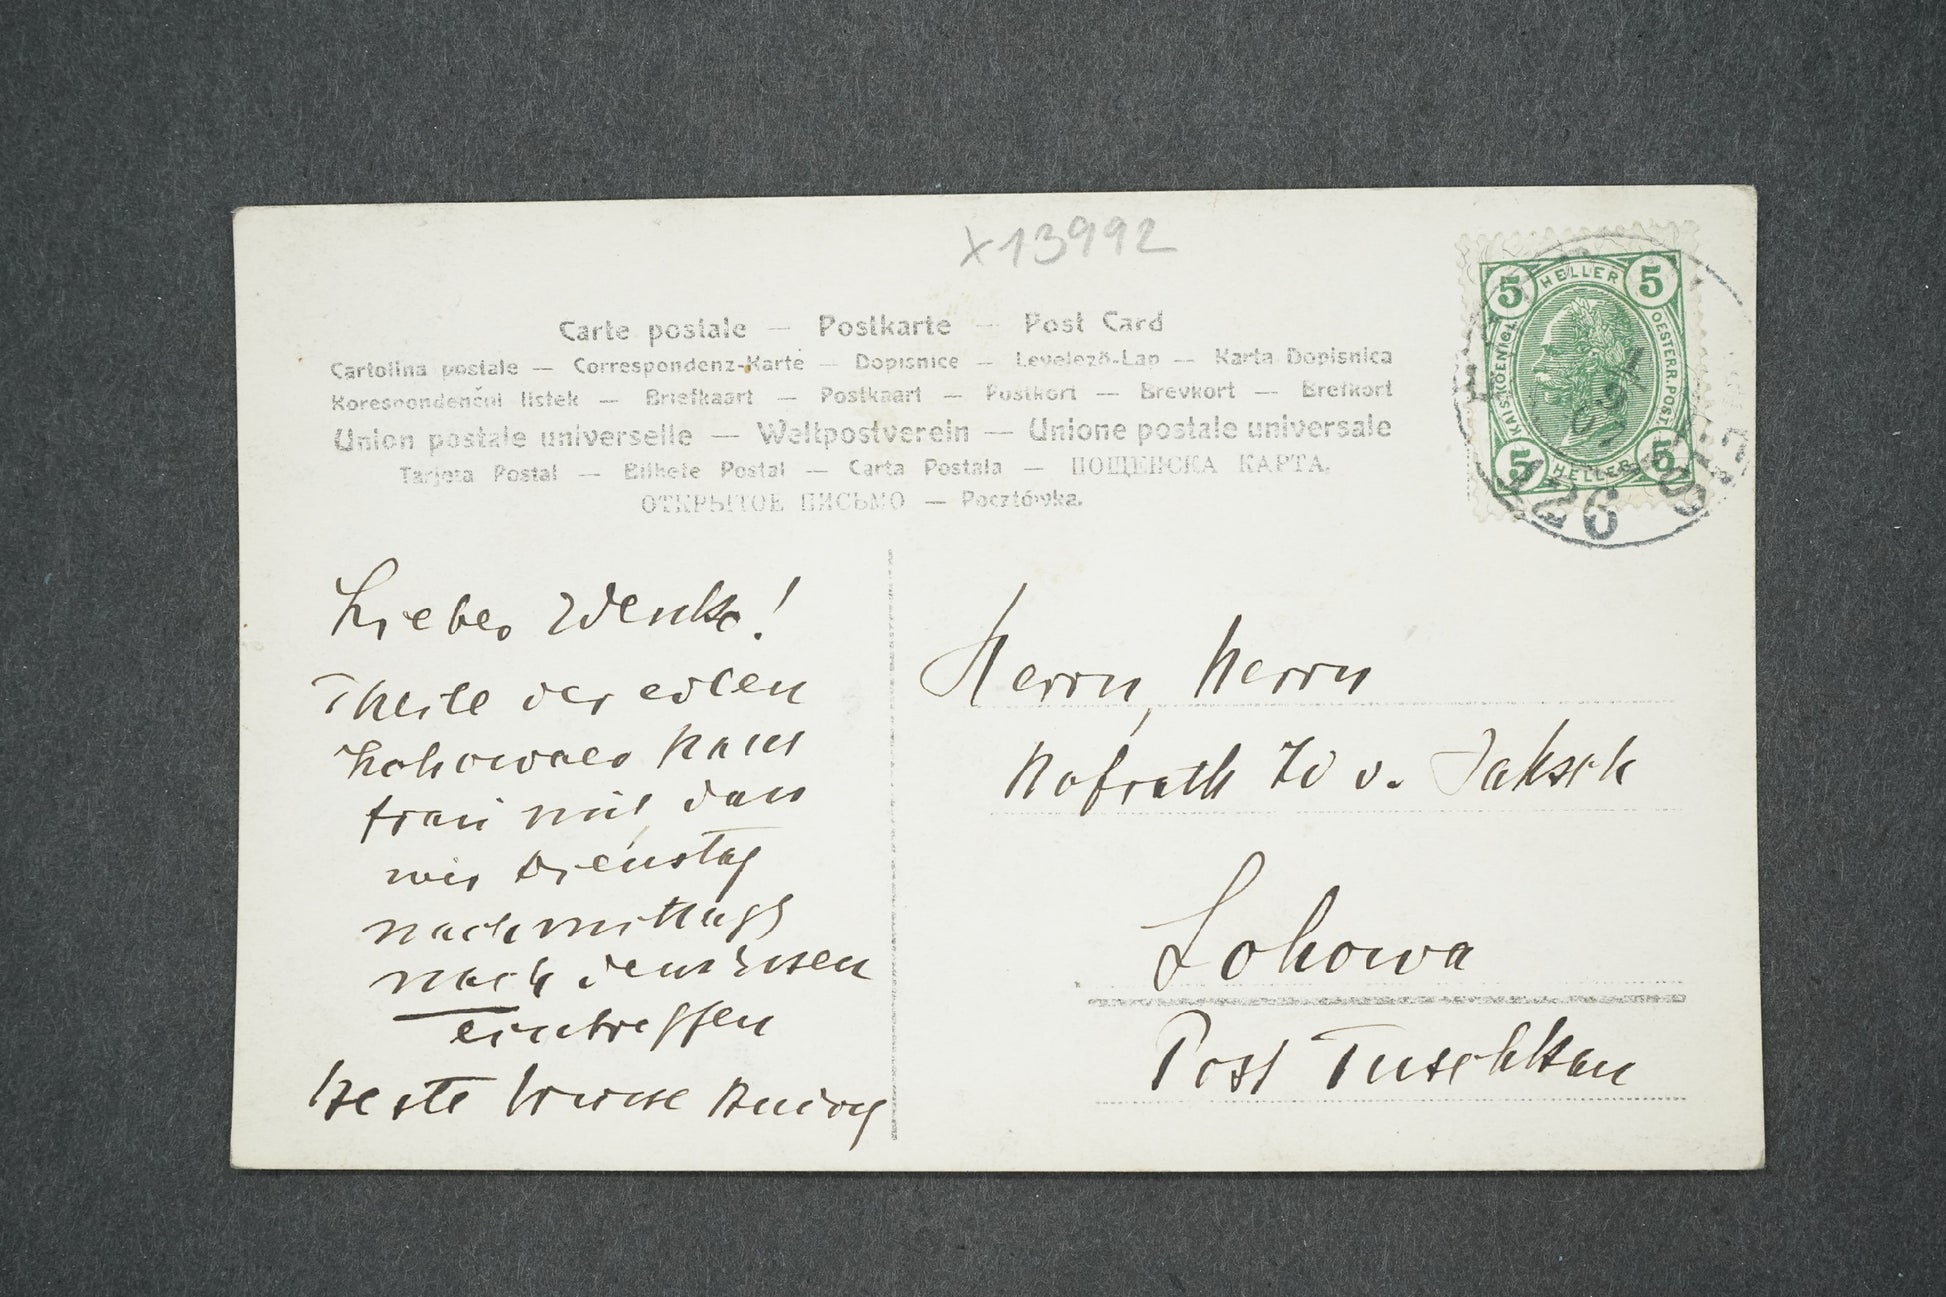 x13992
Carte postale — Postkarte — Post Card
Cartolina postale — Correspondenz-Karte — Dopisnice — Levelező-Lap — Karta Dopisnica
Korespondenčni listek — Briefkaart — Postkaart — Postkort — Brevkort — Brefkort
Union postale universelle — Weltpostverein — Unione postale universale
Tarjeta Postal — Bilhete Postal — Carta Postala — ПОЩЕНСКА КАРТА.
ОТКРЫТОЕ ПИСЬМО — Pocztówka.
5 HELLER 5
KAIS. KOENIGL. OESTERR. POST
5 HELLER 5
Lieber Zdenko!
Theile der edlen
Lohowaer Haus
frau mit, dass
wir Dienstag
nachmittags
nach dem Essen
eintreffen
Beste Grüsse
Herrn, Herrn
Hofrath v. Jaksch
Lohowa
Post Tuschkau